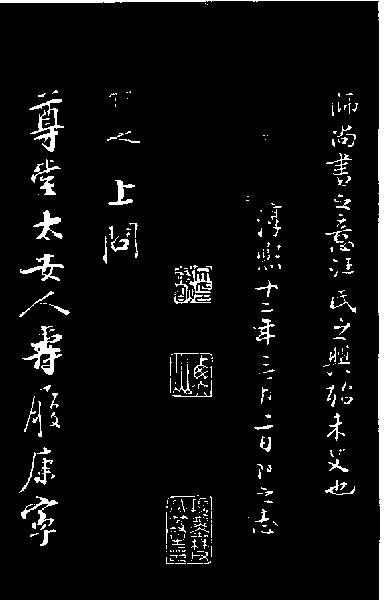 師尚書之意汪氏之興殆未艾也
淳熙十二年三月二日 之志
上問
尊堂太安人壽履康寧